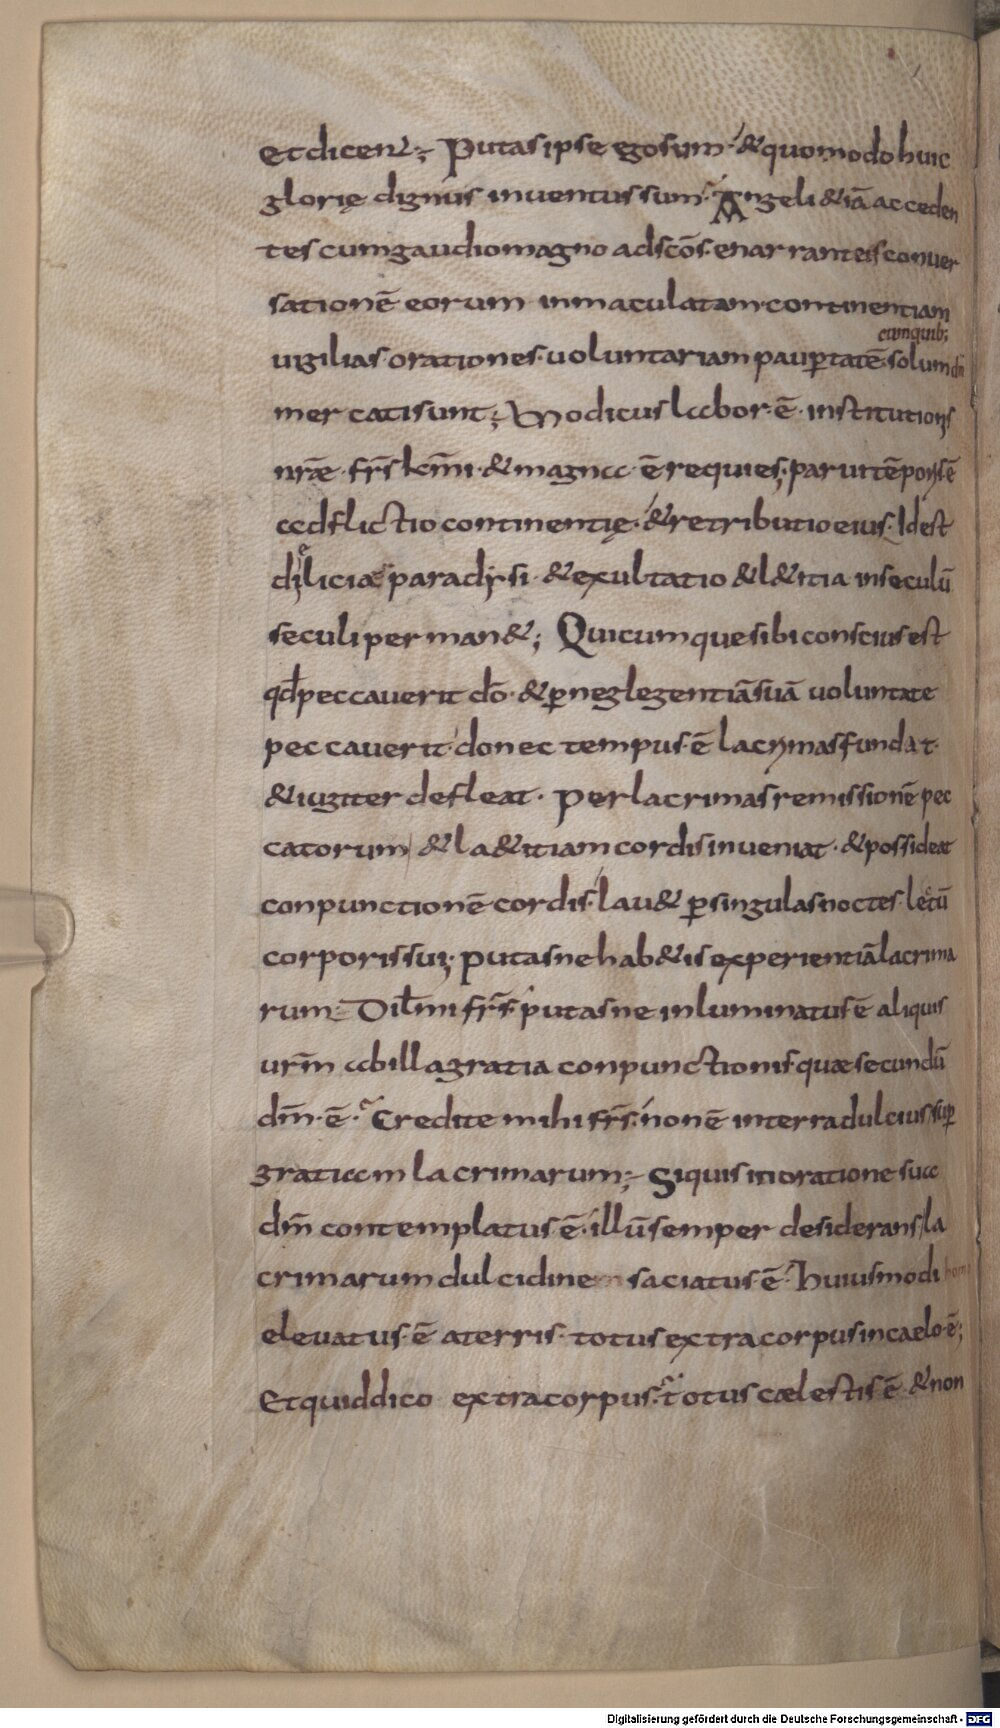 Et dicent; Putas ipse ego sum · & quomodo huic
glorię dignus inventus sum · Angeli & iā acceden
tes cum gaudio magno ad scōs · enarrantes conver
sationē eorum inmaculatam · continentiam
cumquib;
vigilias · orationes · voluntariam paup̄tatē · solum
mercati sunt; Modicus labor · ē · institutionis
nr̄æ · fr̄s km̄i · & magna · ē requies; parvi tēporis · ē
adflictio continentię · & retributio eius · Id est
dilicia paradysi · & exultatio & l&itia in seculū
seculi perman&; Quicumque sibi conscius est
qđ peccaverit dō · & p̄ neglegentiā suā voluntate
peccaverit · donec tempus · ē lacrymas fundat ·
& iugiter defleat · Per lacrimas remissionē pec
catorum & la&itiam cordis inveniat · & possideat
conpunctionē cordis · lav& p̄ singulas noctes · lectū
corporis sui; putasne hab&is experientiā lacrima
rum · Dil̄mi fr̄s · putasne inluminatus ē aliquis
urm̄ ab illa gratia conpunctionis · quæ secundū
dm̄ · ē · Credite mihi fr̄s · non ē in terra dulcius · sup̄
gratiam lacrimarum; Si quis in oratione sua
dm̄ contemplatus · ē · illū semper desiderans · la
crimarum dulcidine saciatus · ē · Huiusmodi homo
elevatus · ē a terris · totus extra corpus in caelo · ē;
Et quid dico extra corpus · Totus cælestis ē & non
Digitalisierung gefördert durch die Deutsche Forschungsgemeinschaft - DFG